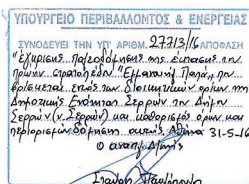 ΥΠΟΥΡΓΕΙΟ ΠΕΡΙΒΑΛΛΟΝΤΟΣ & ΕΝΕΡΓΕΙΑΣ
ΣΥΝΟΔΕΥΕΙ ΤΗΝ ΥΠ' ΑΡΙΘΜ. 27713/16 ΑΠΟΦΑΣΗ
"Έγκρισης πολεοδόμησης της έκτασης του
πρώην στρατοπέδου "Εμμανουήλ Παπά", που
βρίσκεται εντός των διοικητικών ορίων της
Δημοτικής Ενότητας Σερρών του Δήμου
Σερρών (ν. Σερρών) και καθορισμός όρων και
περιορισμών δόμησης αυτής, Αθήνα 31-5-16
Ο αναπλ. Δ/ντής